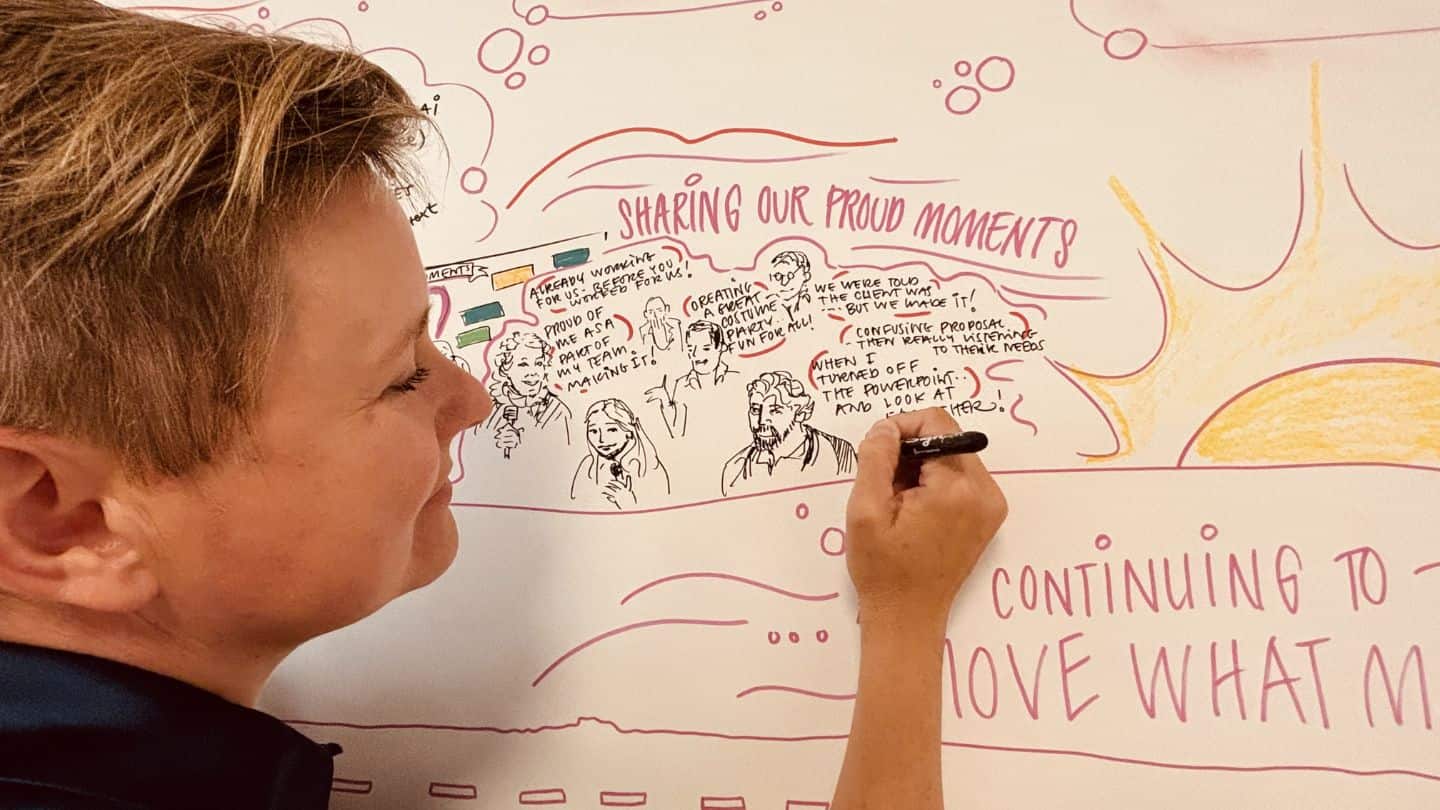 SHARING OUR PROUD MOMENTS
MENTS
ALREADY WORKING
FOR US - BEFORE YOU
WORKED FOR US!
PROUD OF
ME AS A
PART OF
MY TEAM..
MAKING IT!
CREATING
A GREAT
COSTUME
PARTY..
FUN FOR ALL!
WE WERE TOLD
THE CLIENT WAS
... BUT WE MADE IT!
CONFUSING PROPOSAL..
THEN REALLY LISTENING
TO THEIR NEEDS
WHEN I
TURNED OFF
THE POWERPOINT..
AND LOOK AT
HER!
CONTINUING TO
OVE WHAT M